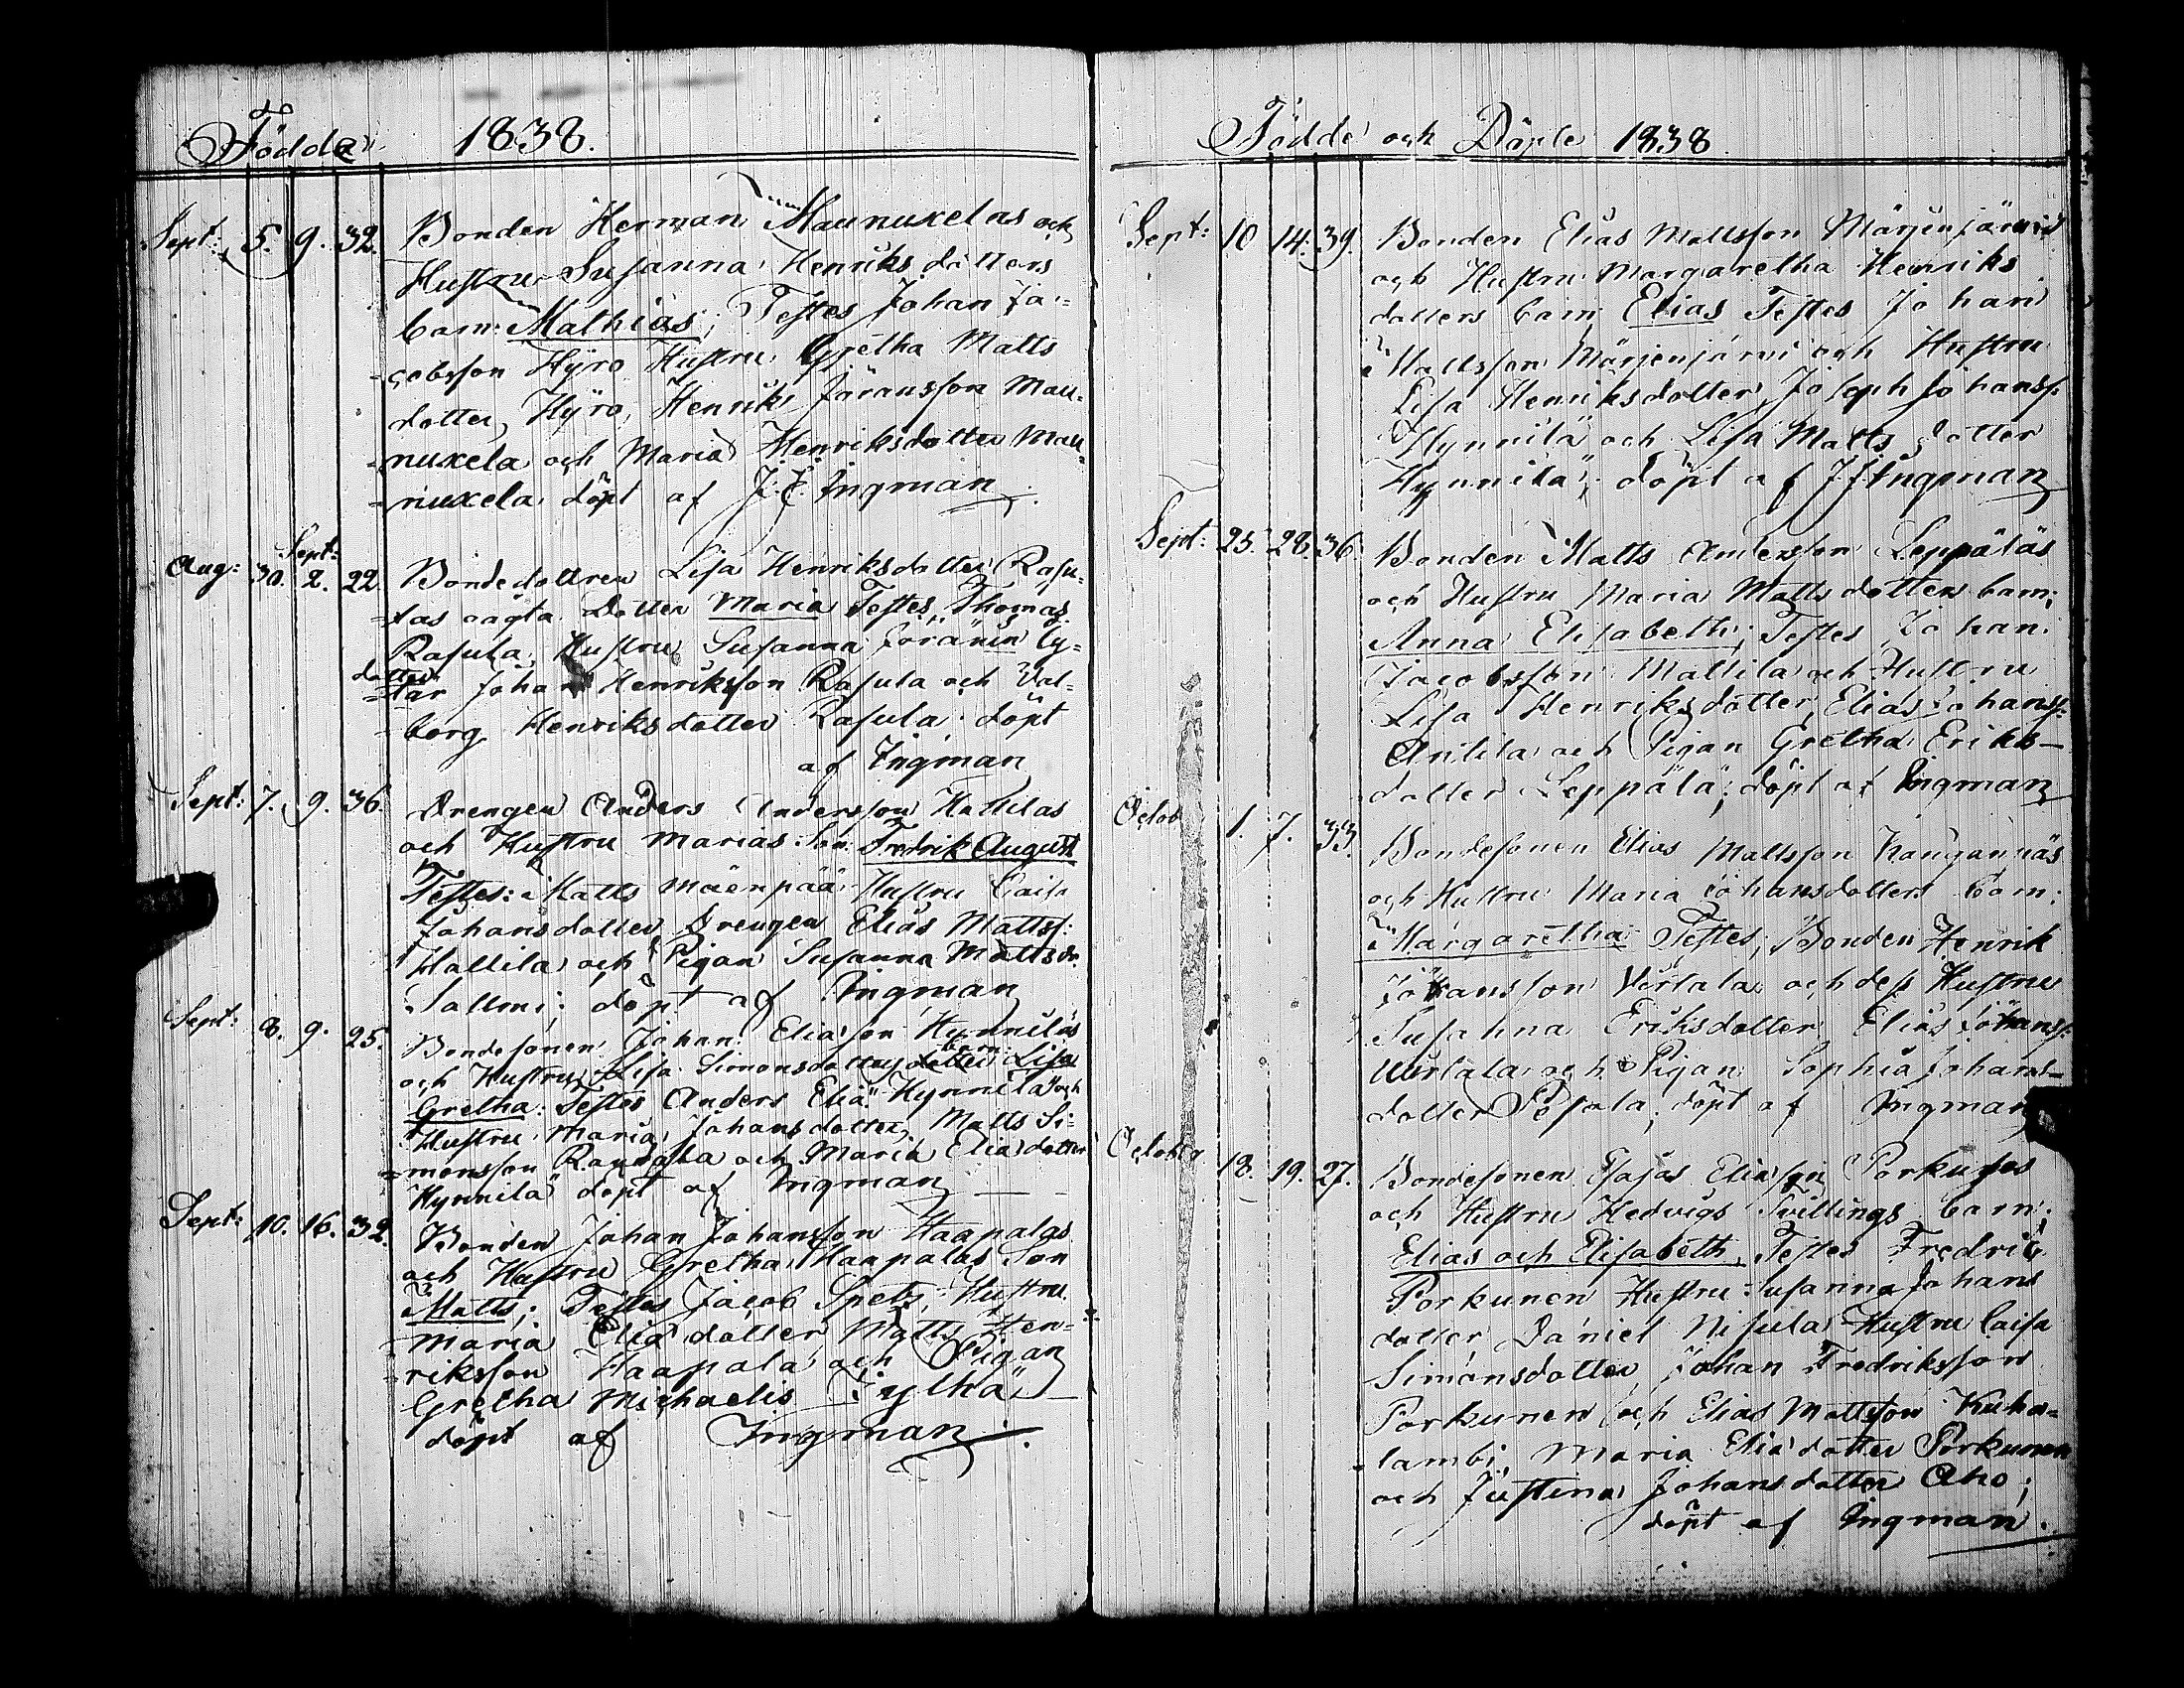 Födde 1838.
Sept: 5. 9. 32. Bonden Herman Maunuxelas och
Hustru Susanna Henriks dotters
barn: Mathias; Testes Johan Ja=
=cobsson Hyro Hustru Gretha Matts
dotter Hyro, Henrik Jöransson Mau=
=nuxela och Maria Henriksdotter Mau=
=nuxela döpt af J. F. Ingman
Sept:
Aug: 30. 2. 22. Bondedottren Lisa Henriksdotter Rasu=
=las oägta dotter Maria Testes, Thomas
Rasula, Hustru Susanna
dotter
Johan Henriksson Rasula och Val=
=borg Henriksdotter Rasula döpt
af Ingman
Sept: 7. 9. 36. Drengen Anders Andersson Hallilas
och Hustru Marias Son: Fredrik August
Testes: Matts Mäenpää Hustru Caisa
Johansdotter Drengen Elias Mattss:
Hallila och Pigan Susanna Mattsdr.
Salloni; döpt af Ingman
Sept: 8. 9. 25. Bondesonen Johan Eliasson Hynniläs
barn
och Hustru Lisa Simonsdotters dotter Lisa
Gretha: Testes Anders Elia: Hynnilä och
Hustru Maria Johansdotter, Matts Si=
=monsson och Maria Eliadotter
Hynnilä döpt af Ingman
Sept: 10. 16. 32. Bonden Johan Johansson Haapalas
och Hustru Gretha Haapalas Son
Matts; Testes Jacob Spets, Hustru
Maria Elia dotter, Matts Hen=
=riksson Haapala och Pigan
Gretha Michaelis Jylhä
döpt af Ingman.
Födde och Döpte 1838
Sept: 10 14. 39. Bonden Elias Mattsson Märjenjärvis
och Hustru Margaretha Henriks
dotters barn Elias Testes Johan
Mattsson Märjenjärvi och Hustru
Lisa Henriksdotter, Joseph Johanss:
Hynnilä och Lisa Matts dotter
Hynnilä; döpt af J F Ingman
Sept: 25. 28. 36. Bonden Matts Andersson Leppäläs
och Hustru Maria Matts dotters barn;
Anna Elisabeth; Testes Johan
Jacobsson Mattila och Hustru
Lisa Henriksdotter, Elias Johanss:
Antila och Pigan Gretha Eriks-
dotter Leppälä; döpt af Ingman
Octob 1. 7. 33. Bondesonen Elias Mattsson Kangannäs
och Hustru Maria Johansdotters barn;
Margaretha Testes; Bonden Henrik
Johansson Virtala och dess Hustru
Susanna Eriksdotter Elias Johanss:
Wirtala och Pigan Sophia Johans-
dotter Pesola; döpt af Ingman
October 18. 19. 27. Bondesonen Esajas Eliasson Porkuses
och Hustru Hedvigs Tvillings barn;
Elias och Elisabeth, Testes Fredric
Porkunen Hustru Susanna Johans
dotter, Daniel Nisula Hustru Caisa
Simonsdotter Johan Fredriksson
Porkunen och Elias Mattsson Kuha=
=lambi, Maria Elia dotter Porkunen
och Justina Johansdotter Aho;
döpt af Ingman.